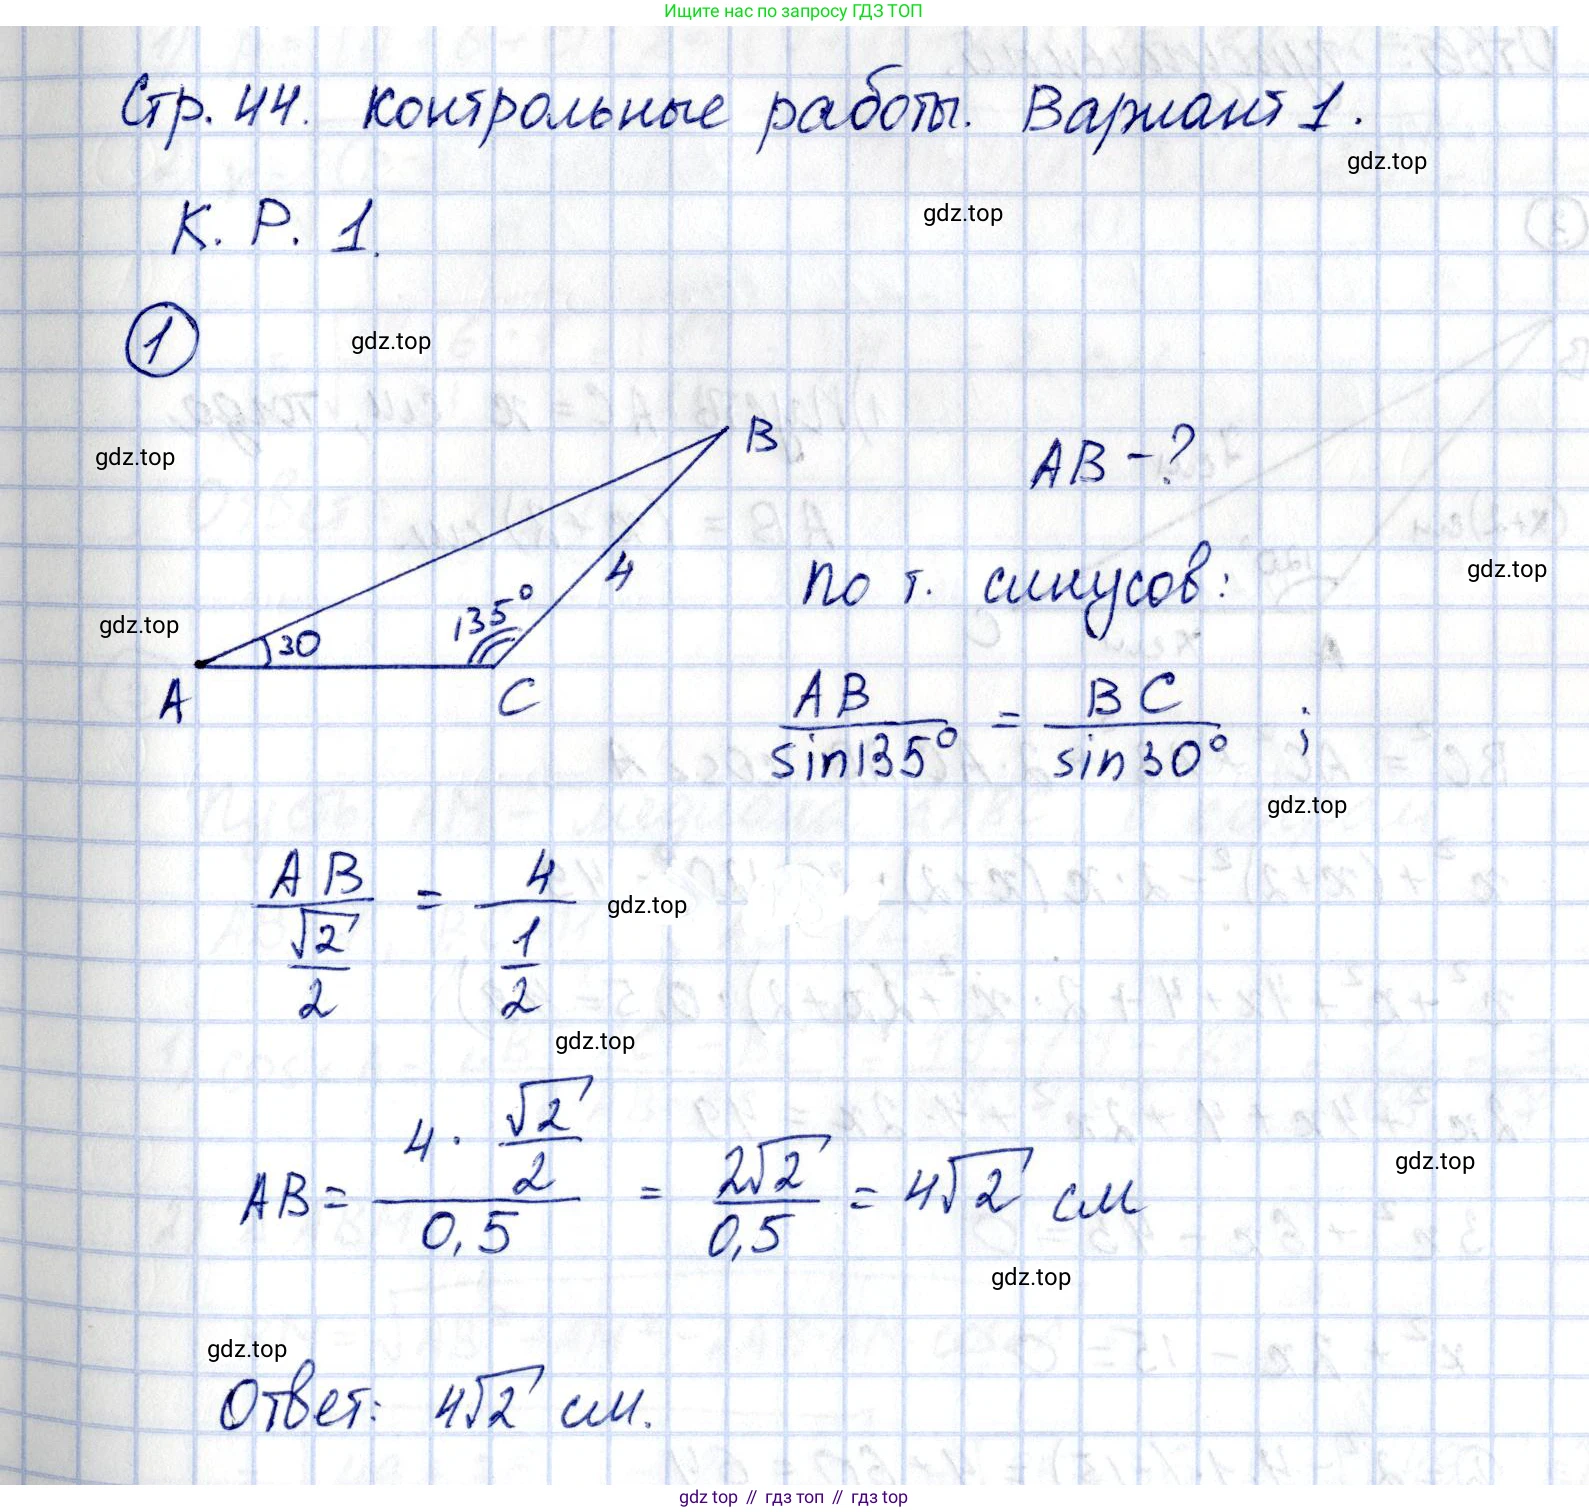 Ищите нас по запросу ГДЗ ТОП
Стр. 44. Контрольные работы. Вариант 1.
gdz.top
К. Р. 1.
gdz.top
1
gdz.top
B
AB - ?
gdz.top
4
По т. синусов:
gdz.top
135°
30
gdz.top
A
C
AB / sin135° = BC / sin30° ;
gdz.top
AB / (√2 / 2) = 4 / (1 / 2)
gdz.top
gdz.top
AB = (4 · √2 / 2) / 0,5 = 2√2 / 0,5 = 4√2 см
gdz.top
gdz.top
gdz.top
Ответ: 4√2 см.
gdz top // гдз топ // гдз top